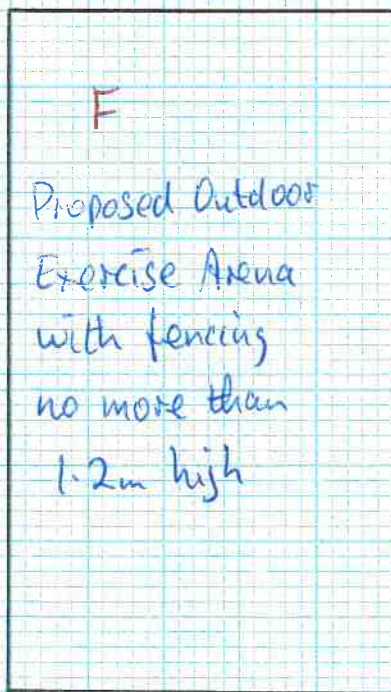 F
Proposed Outdoor
Exercise Arena
with fencing
no more than
1.2m high